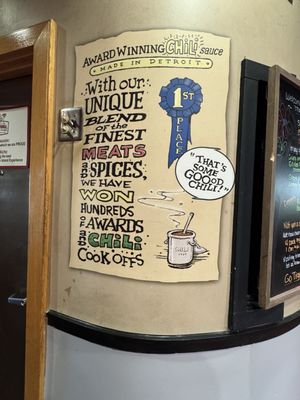 AWARD WINNING CHiLi SAUCE
MADE IN DETROIT
With our
UNIQUE
BLEND
OF THE
FINEST
MEATS
AND
SPICES,
WE HAVE
WON
HUNDREDS
OF
AWARDS
AND
CHiLi
COOK OFFS
1ST
PLACE
"THAT'S
SOME
GOOOD
CHILI!"